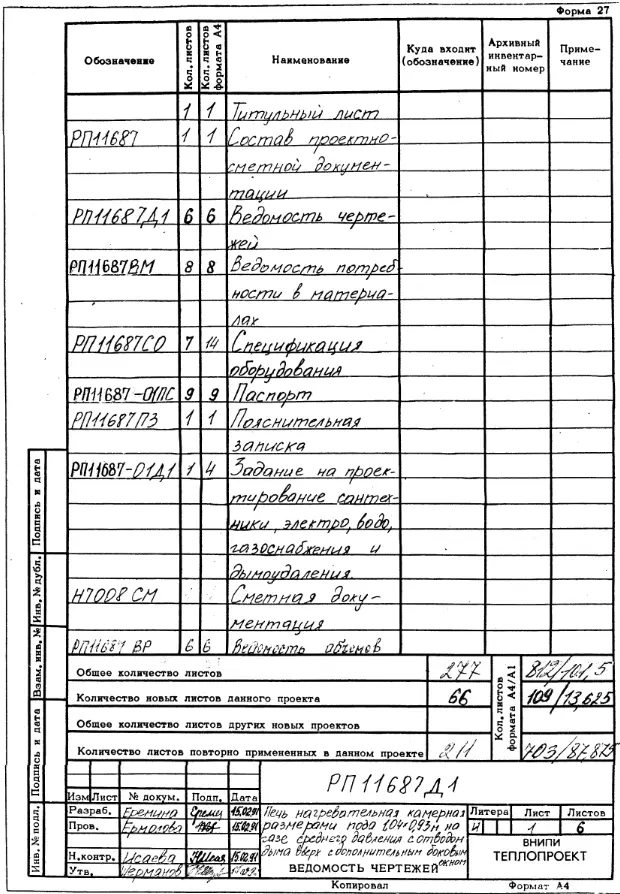 Форма 27
Обозначение Кол. листов Кол. листов формата А4 Наименование Куда входит (обозначение) Архивный инвентар-ный номер Приме-чание
1 1 Титульный лист
РП11687 1 1 Состав проектно-
сметной докумен-
тации
РП11687Д1 6 6 Ведомость черте-
жей
РП11687ВМ 8 8 Ведомость потреб-
ности в материа-
лах
РП11687СО 7 14 Спецификация
оборудования
РП11687-01ПС 9 9 Паспорт
РП11687ПЗ 1 1 Пояснительная
записка
РП11687-01Д1 1 4 Задание на проек-
тирование сантех-
ники, электро, водо,
газоснабжения и
дымоудаления.
Н7008 СМ Сметная доку-
ментация
РП11687 ВР 6 6 Ведомость объемов
Общее количество листов 277 812/101,5
Количество новых листов данного проекта 66 109/13,625
Общее количество листов других новых проектов
Количество листов повторно примененных в данном проекте 211 703/87,875
Кол. листов формата А4/А1
РП11687Д1
Изм Лист № докум. Подп. Дата
Разраб. Еремина 15.02.91
Пров. Ермолова 15.02.91
Н.контр. Исаева 15.02.91
Утв. Черманов
Печь нагревательная камерная
размерами пода 1,04×0,93м на
газе среднего давления с отводом
дыма вверх с дополнительным боковым
окном
ВЕДОМОСТЬ ЧЕРТЕЖЕЙ
Литера Лист Листов
И 1 6
ВНИПИ
ТЕПЛОПРОЕКТ
Копировал Формат А4
Подпись и дата
Инв. № дубл.
Взам. инв. №
Подпись и дата
Инв. № подл.